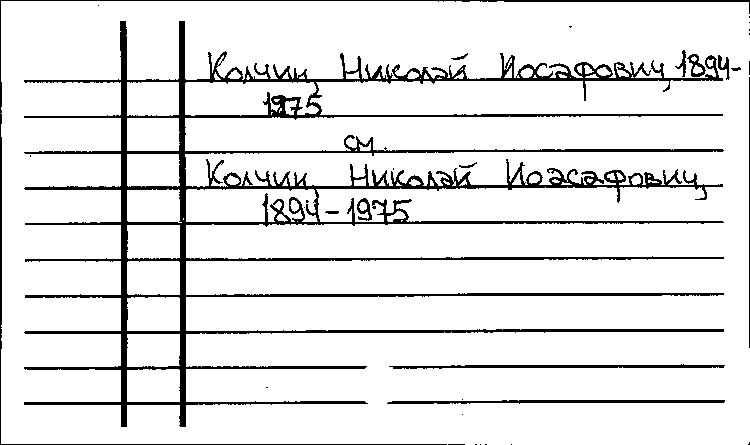 Колчин, Николай Иосафович, 1894-
1975
см.
Колчин, Николай Иоасафович,
1894-1975